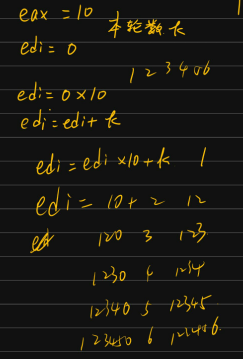 eax = 10
本轮数 k
edi = 0
1 2 3 4 5 6
edi = 0 × 10
edi = edi + k
edi = edi × 10 + k 1
edi = 10 + 2 12
120 3 123
1230 4 1234
12340 5 12345
123450 6 123456